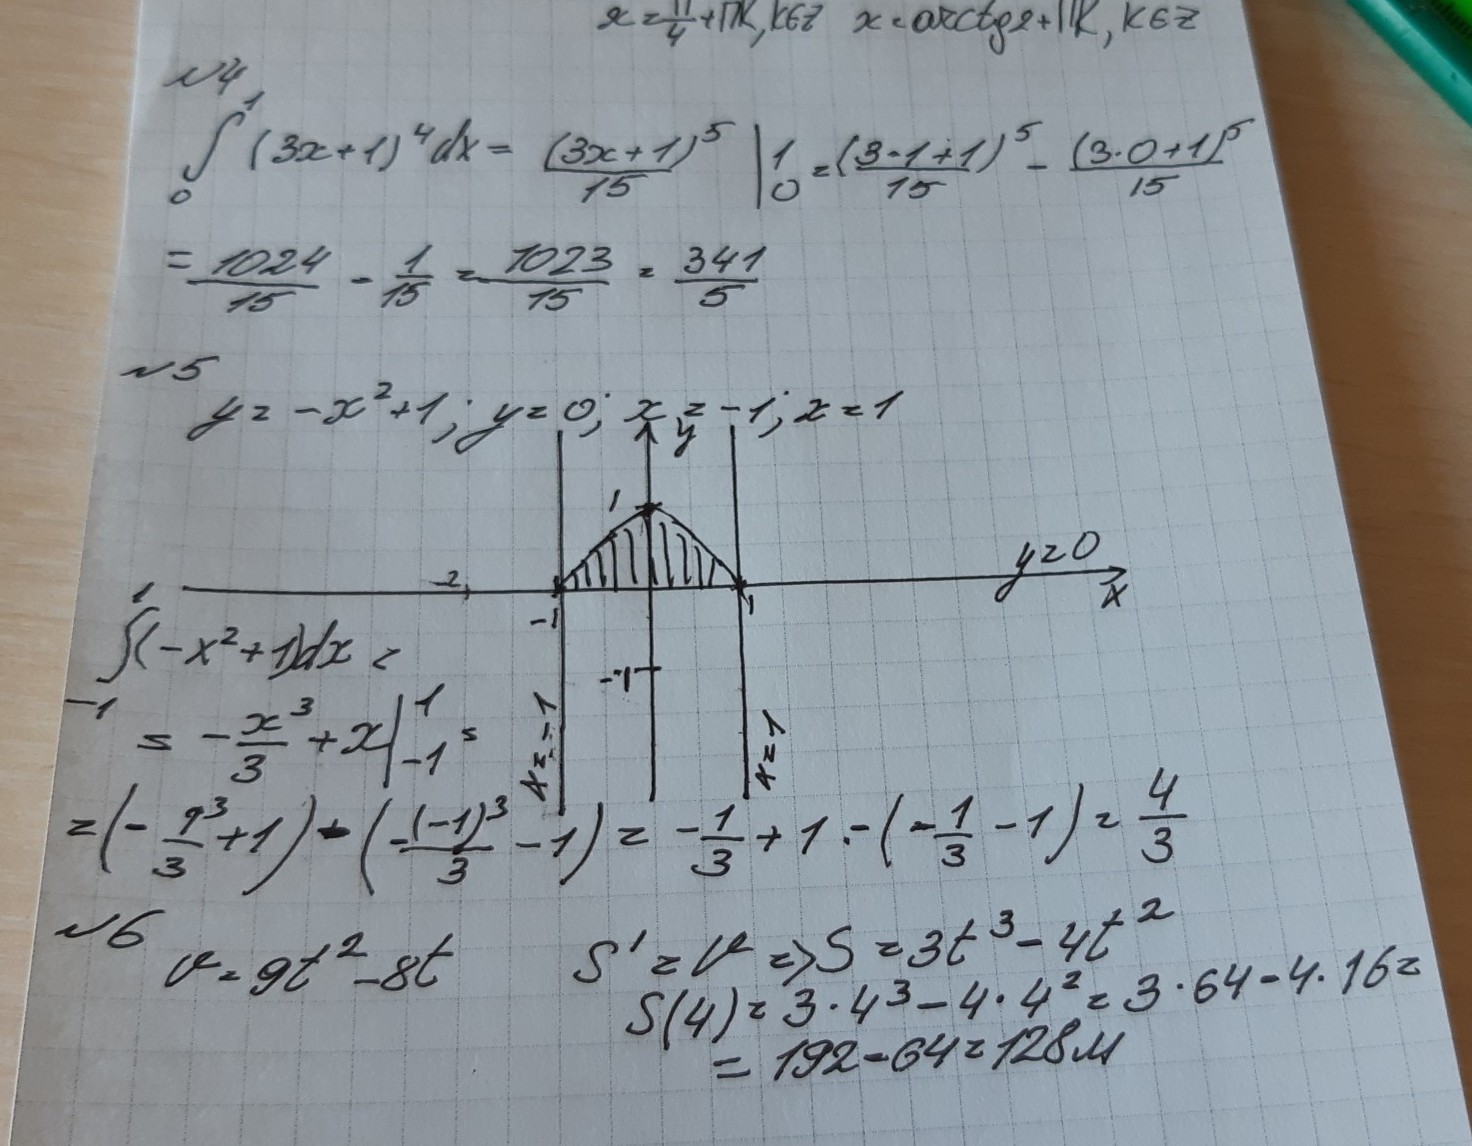 x = π/4 + Πk, k∈Z x = arctg2 + Πk, k∈Z
№4
∫₀¹ (3x+1)⁴dx = (3x+1)⁵/15 |₀¹ = (3·1+1)⁵/15 - (3·0+1)⁵/15
= 1024/15 - 1/15 = 1023/15 = 341/5
№5
y = -x²+1; y = 0; x = -1; x = 1
y
1
y=0
-2
-1
1
x
∫₋₁¹(-x²+1)dx =
-1
= -x³/3 + x |₋₁¹ =
x=-1
x=1
= (-1³/3 + 1) - (-(-1)³/3 - 1) = -1/3 + 1 - (-1/3 - 1) = 4/3
№6
v = 9t² - 8t S' = v => S = 3t³ - 4t²
S(4) = 3·4³ - 4·4² = 3·64 - 4·16 =
= 192 - 64 = 128м